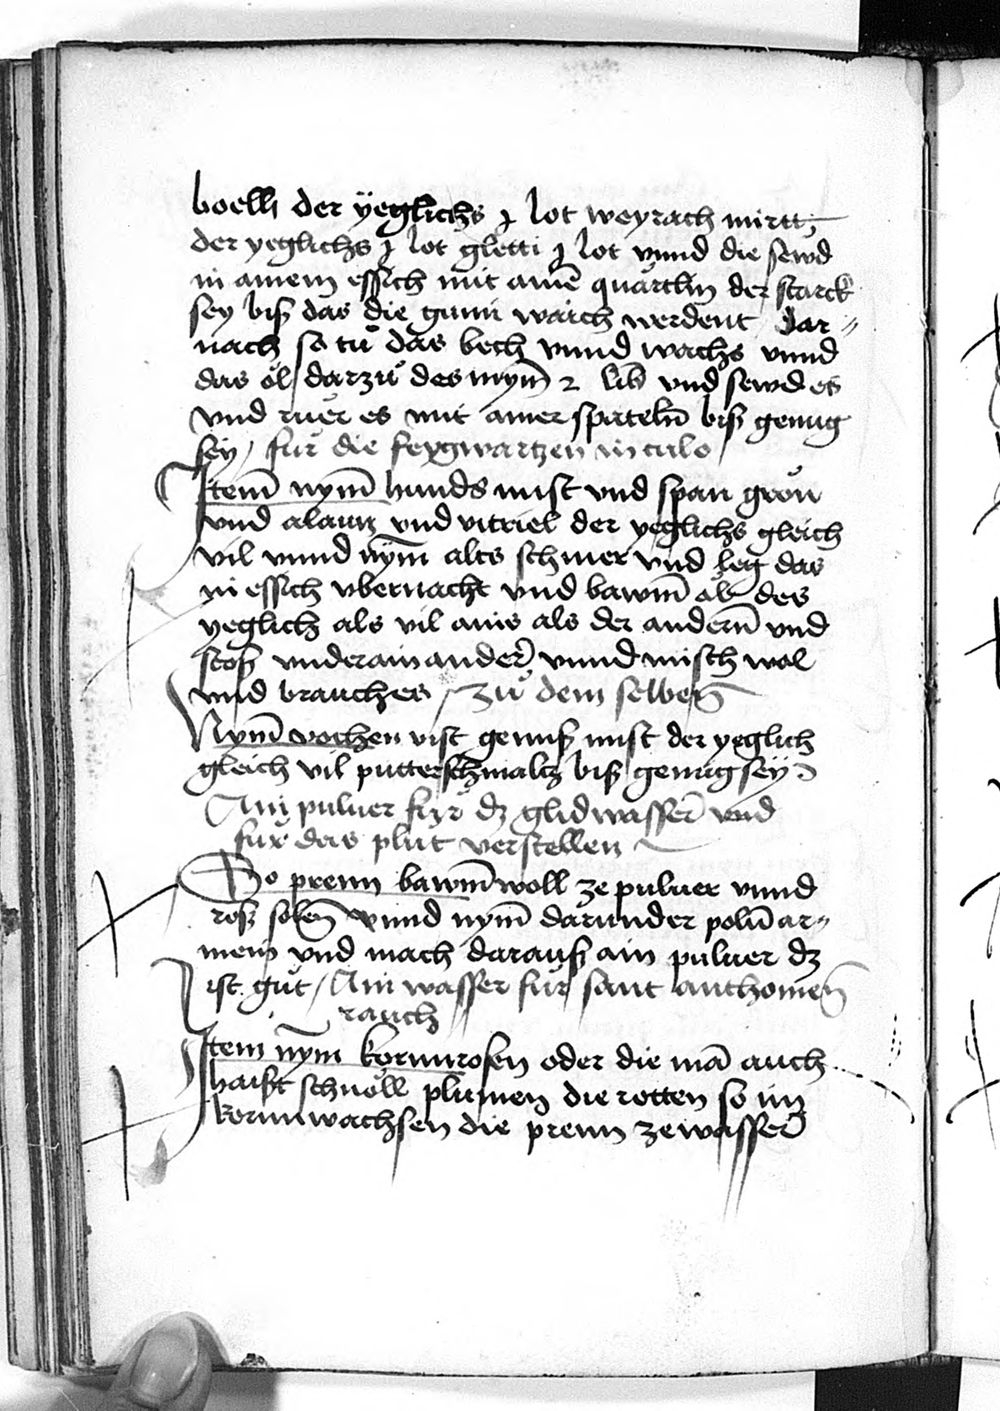 boelli der ÿeglichs j lot weyrach mirtt
der yeglichs j lot gletti j lot vnnd die sewd
in ainem essich mit ainē quartlin der starck
sey biß das die gumi waich werdent / Dar-
nach so tů das bech vnnd wachs vnnd
das ȯl / darzů des nym̄ 2 lib vnd sewd es
vnd růer es mit ainer spatelin biß genug
sey / für die feygwartzen in culo
Item̄ nym̄ hunds mist vnd span grön
vnd alaun vnd vitriel der yeglichs gleich
vil vnnd nÿm̄ alts schmer vnd leg das
in essich vbernacht vnd bawm̄ öl des
yeglich als vil ains als der andern̄ vnd
stoß vnderainander vnnd misch wol
vnd brauch es / zů dem selben̄
Nym̄ rochen mist genuß mist der yeglich
gleich vil putterschmaltz biß genug seÿ
Ain puluer fúr dz glidwasser vnd
für das plůt verstellen
So prenn bawm̄woll ze puluer vnnd
roß solen̄ vnnd nym̄ darunder polū ar-
meni vnd mach darauß ain puluer dz
ist gůt / Ain wasser fůr sant anthonien̄
rauch
Item nym̄ kornnrosen oder die mā auch
haißt schnöll plůmen die rotten so im
kornn wachsen die prenn ze wasser